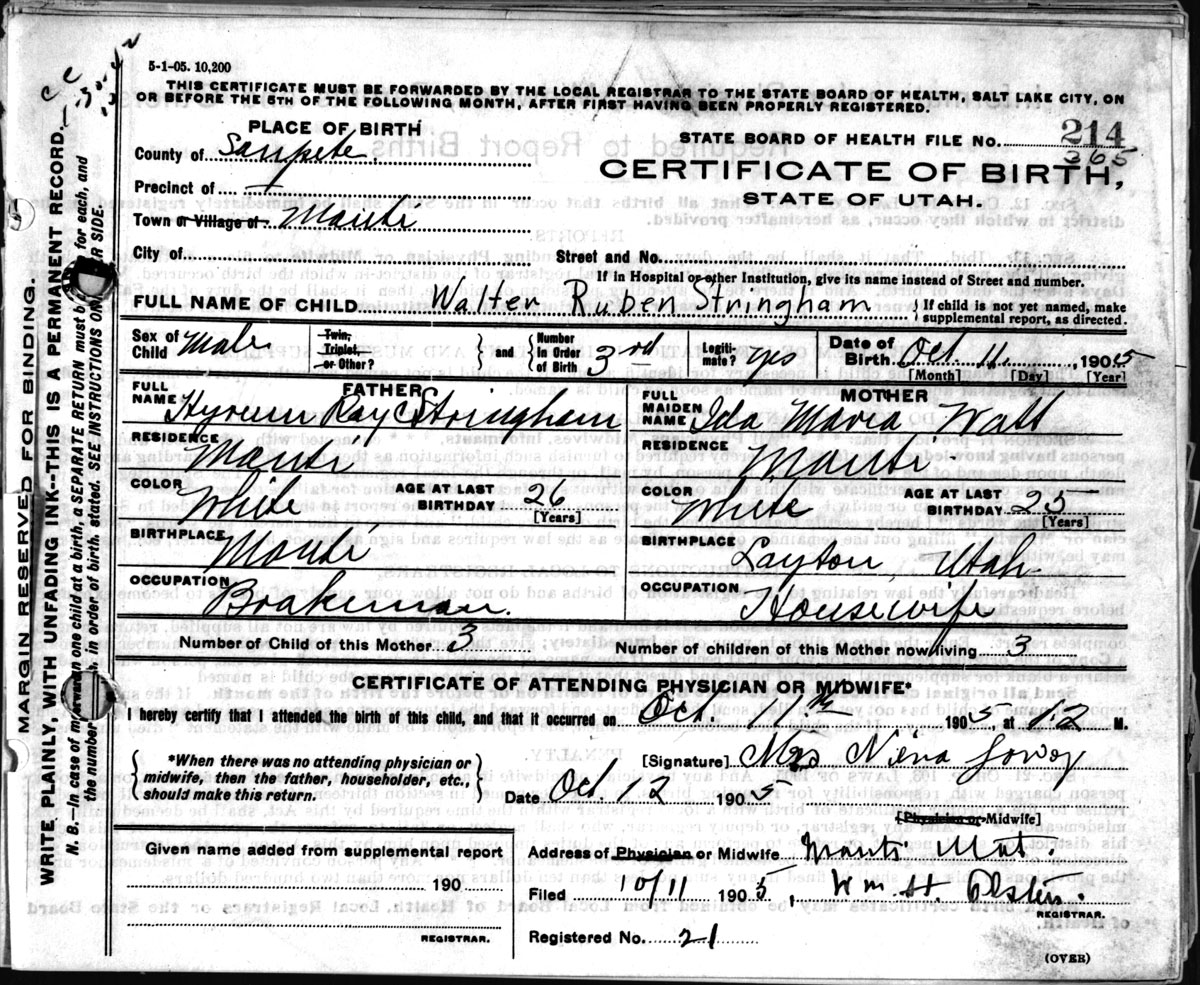 5-1-05. 10,200
THIS CERTIFICATE MUST BE FORWARDED BY THE LOCAL REGISTRAR TO THE STATE BOARD OF HEALTH, SALT LAKE CITY, ON
OR BEFORE THE 5TH OF THE FOLLOWING MONTH, AFTER FIRST HAVING BEEN PROPERLY REGISTERED.
PLACE OF BIRTH
County of Sanpete.
Precinct of
Town or Village of Manti
City of
STATE BOARD OF HEALTH FILE No. 214
365
CERTIFICATE OF BIRTH,
STATE OF UTAH.
Street and No.
If in Hospital or other Institution, give its name instead of Street and number.
FULL NAME OF CHILD Walter Ruben Stringham { If child is not yet named, make supplemental report, as directed.
Sex of Child Male Twin, Triplet, or Other? } and { Number in Order of Birth 3rd Legitimate? yes Date of Birth Oct. 11, 1905
[Month] [Day] [Year]
FATHER
FULL NAME Hyrum Ray C Stringham
RESIDENCE Manti
COLOR White AGE AT LAST BIRTHDAY 26
[Years]
BIRTHPLACE Manti
OCCUPATION Brakeman.
MOTHER
FULL MAIDEN NAME Ida Maria Watt
RESIDENCE Manti
COLOR White AGE AT LAST BIRTHDAY 23
[Years]
BIRTHPLACE Layton, Utah
OCCUPATION Housewife
Number of Child of this Mother 3 Number of children of this Mother now living 3
CERTIFICATE OF ATTENDING PHYSICIAN OR MIDWIFE*
I hereby certify that I attended the birth of this child, and that it occurred on Oct. 11th 1905, at 12 M.
{ *When there was no attending physician or
midwife, then the father, householder, etc.,
should make this return. }
[Signature] Mrs Nina
Date Oct. 12 1905
[Physician or Midwife]
Given name added from supplemental report
190
REGISTRAR.
Address of Physician or Midwife Manti Utah.
Filed 10/11 1905, Wm. H.
REGISTRAR.
Registered No. 21
(OVER)
MARGIN RESERVED FOR BINDING.
WRITE PLAINLY, WITH UNFADING INK--THIS IS A PERMANENT RECORD.
N. B.—In case of more than one child at a birth, a SEPARATE RETURN must be for each, and
the number in order of birth, stated. SEE INSTRUCTIONS ON SIDE.